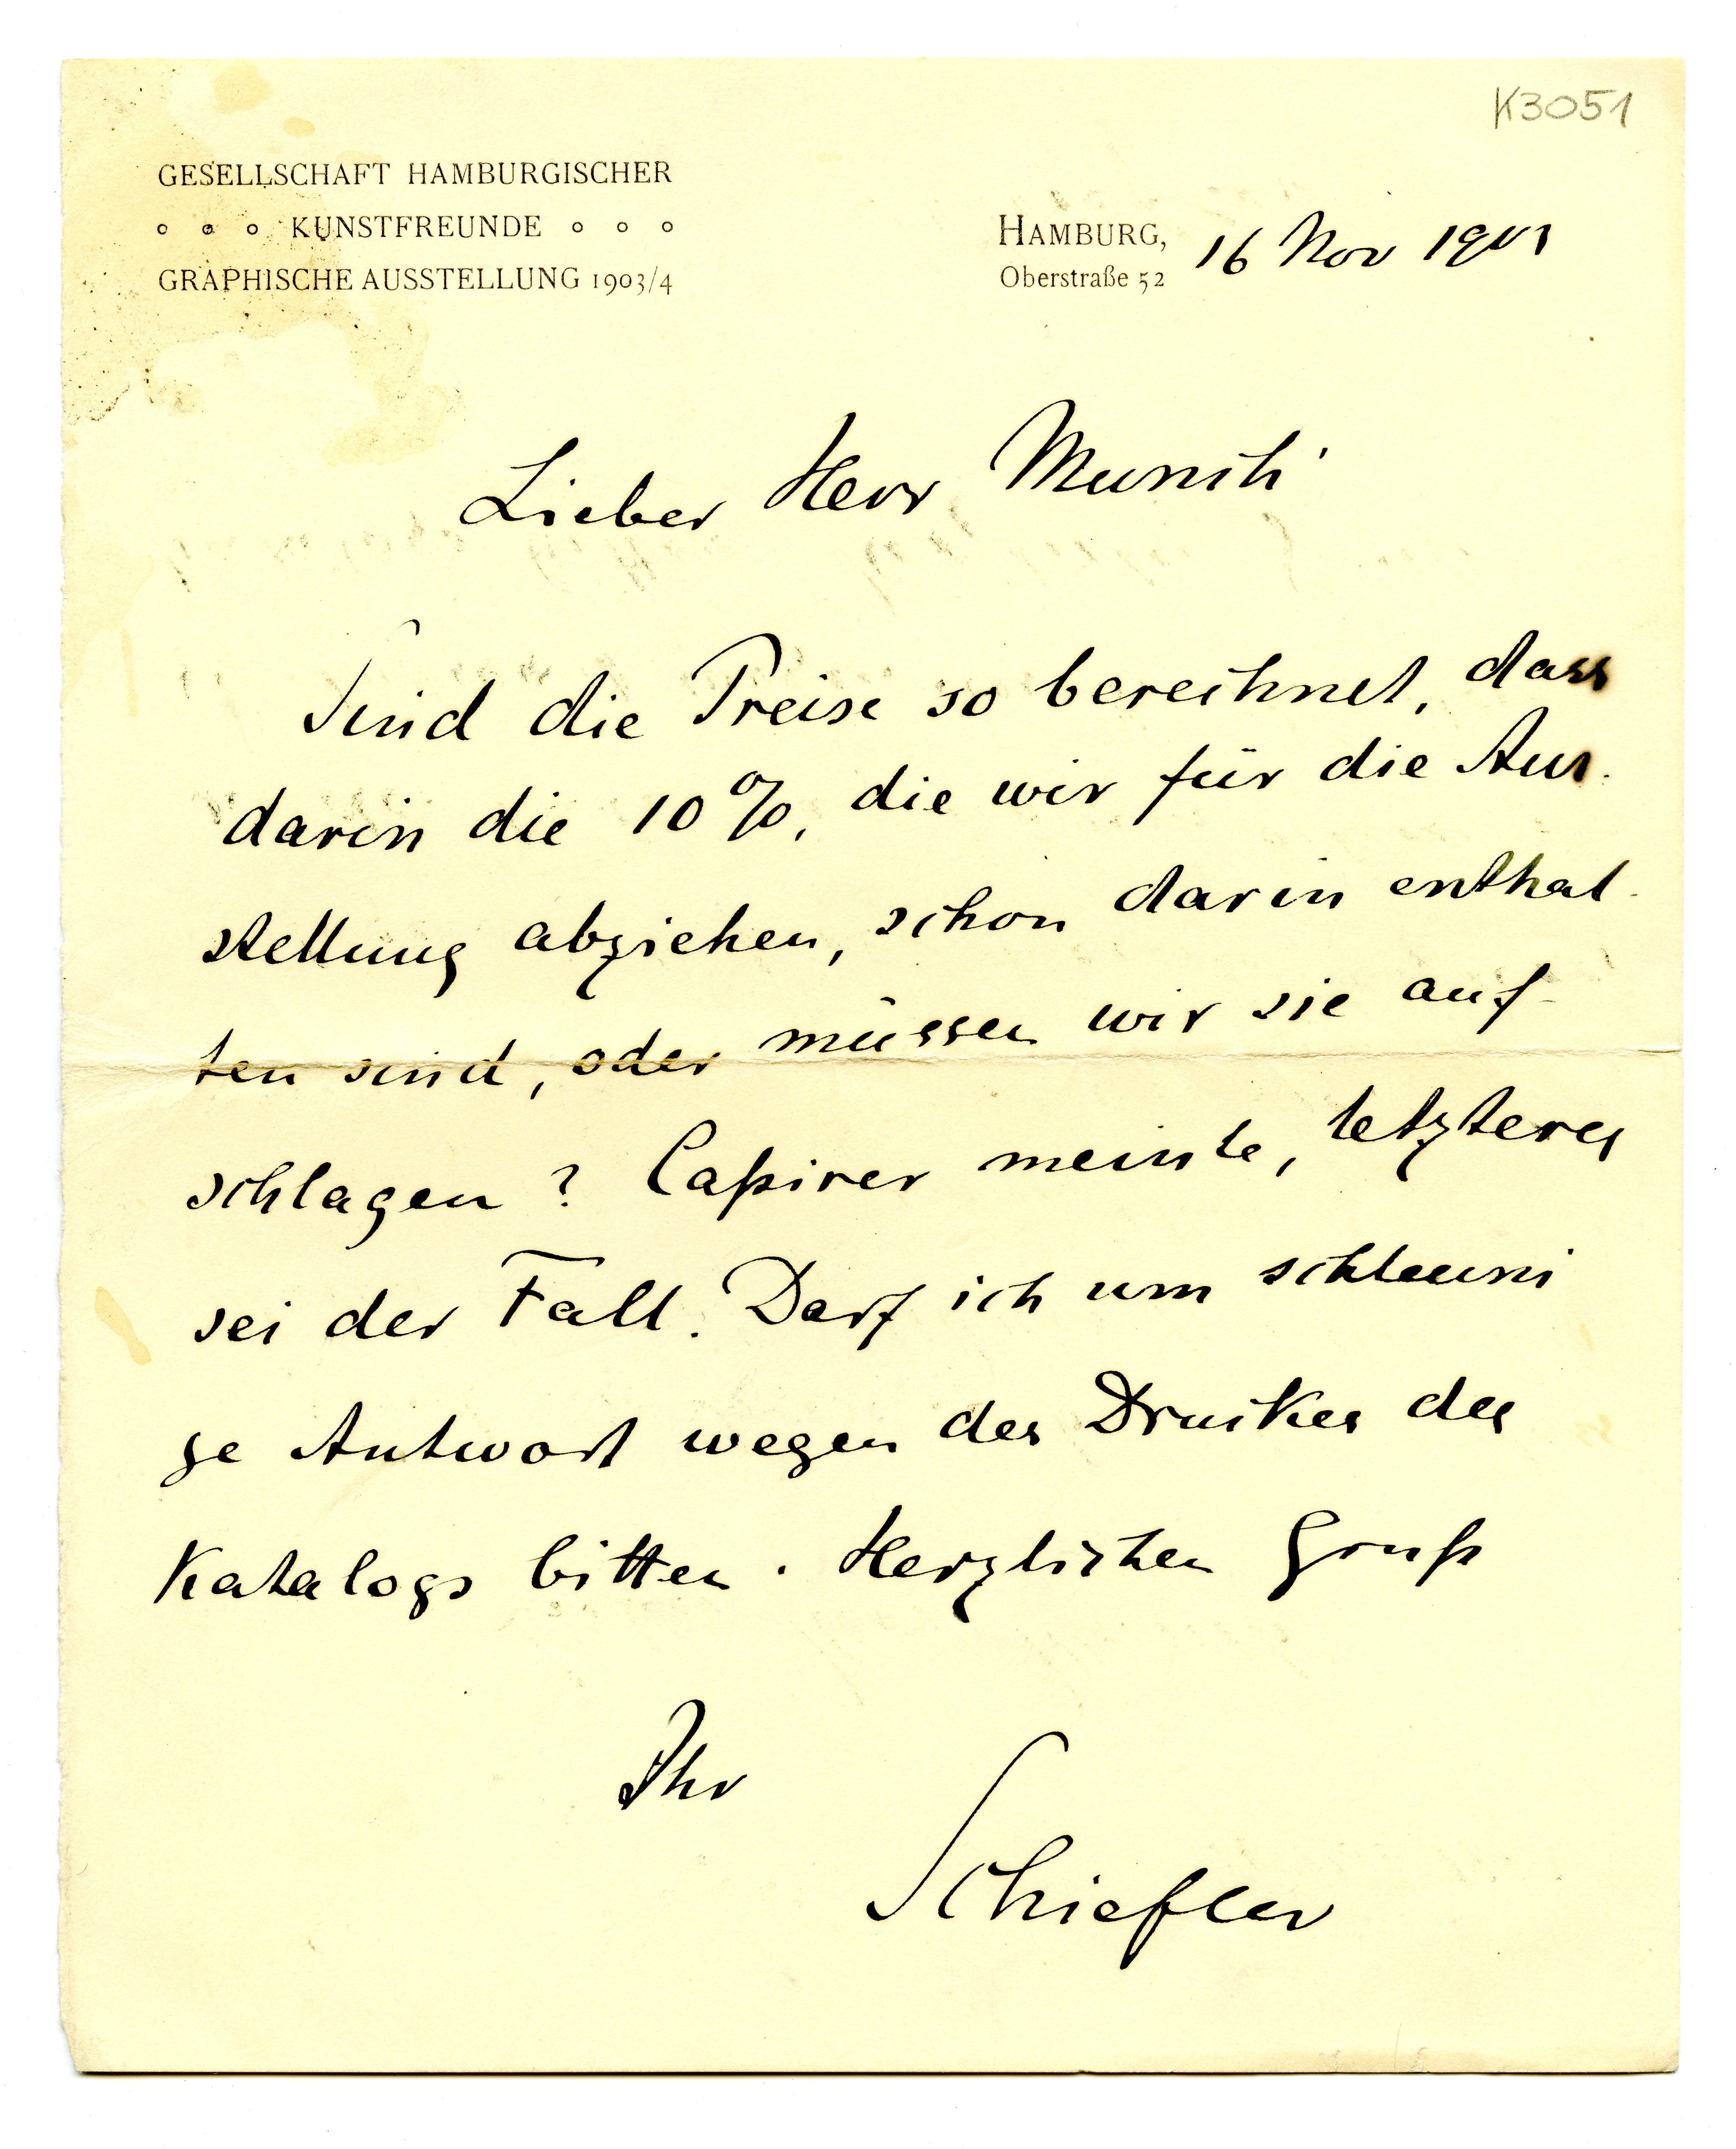 K3051
GESELLSCHAFT HAMBURGISCHER
° ° ° KUNSTFREUNDE ° ° °
GRAPHISCHE AUSSTELLUNG 1903/4
HAMBURG, 16 Nov
Oberstraße 52
Lieber Herr Munch
Sind die Preise so berechnet, dass
darin die 10%, die wir für die Aus-
stellung abziehen, schon darin enthal-
ten sind, oder müssen wir sie auf-
schlagen? Caßirer meinte, letzteres
sei der Fall. Darf ich um schleuni
ge Antwort wegen des Druckes des
Katalogs bitten. Herzlichen Gruß
Ihr
Schiefler